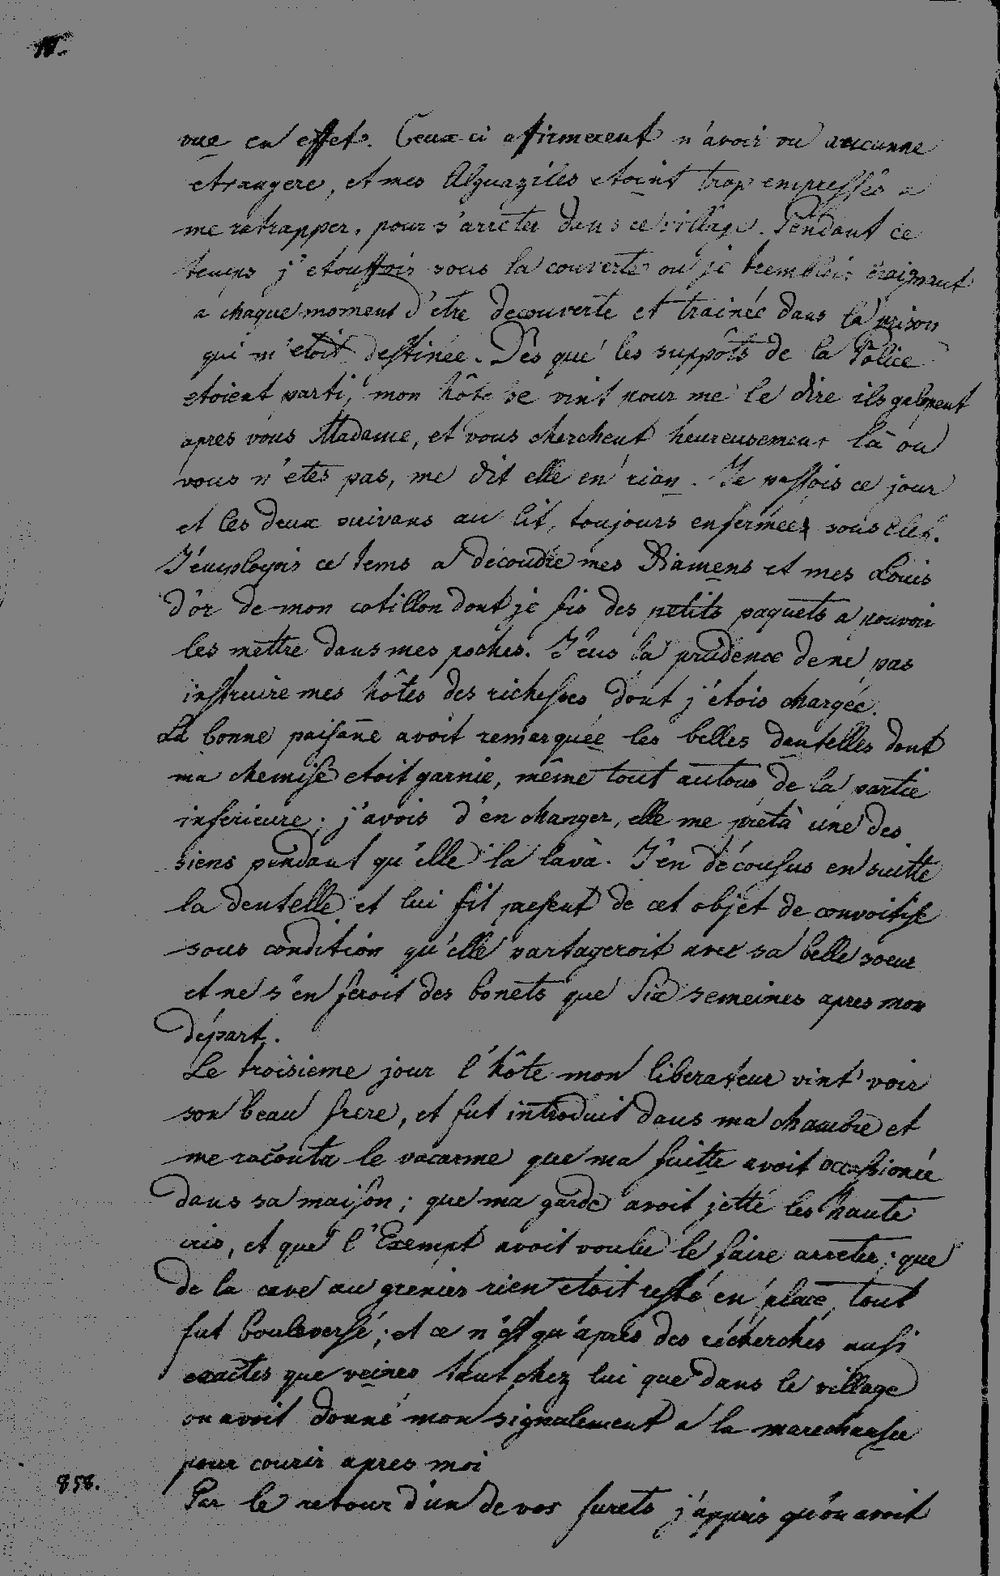 vue en effet. Ceux ci afirmerent n'avoir vu aucunne
etrangere, et mes Alguaziles etoint trop empressés a
me ratrapper, pour s'arreter dans ce village. Pendant ce
temps j'etouffois sous la couverte ou je tremblois craignant
a chaque moment d'etre decouverte et trainée dans la prison
qui m'etoit destinée. Dès que les suppôts de la Police
etoient parti, mon hôtesse vint pour me le dire ils galopent
apres vous Madame, et vous cherchent heureusement là ou
vous n'etes pas, me dit elle en rian. Je passois ce jour
et les deux suivans au lit, toujours enfermées sous clef.
J'employois ce tems a decoudre mes Diamens et mes Louis
d'or de mon cotillon dont je fis des petits paquets a pouvoir
les mettre dans mes poches. J'eus la prudence de ne pas
instruire mes hôtes des richesses dont j'étois chargée.
La bonne paisañe avoit remarquée les belles dentelles dont
ma chemise etoit garnie, même tout autour de la partie
inferieure; j'avois d'en changer, elle me prèta une des
siens pendant qu'elle la lavà. J'en décousus en suitte
la dentelle et lui fit present de cet objet de convoitise
sous condition qu'elle partageroit avec sa belle soeur
et ne s'en feroit des bonets que six semeines apres mon
départ.
Le troisieme jour l'hôte mon liberateur vint voir
son beau frere, et fut introduit dans ma chambre et
me raconta le vacarme que ma fuitte avoit occassionée
dans sa maison; que ma garde avoit jetté les haute
cris, et que l'Exempt avoit voulu le faire arreter; que
de la cave au grenier rien etoit resté en place, tout
fut bouleversé; et ce n'est qu'apres des récherches aussi
exactes que veines tant chez lui que dans le village
on avoit donné mon signalement a la marechaussee
pour courir apres moi
858.
Par le retour d'un de vos furets j'appris qu'on avoit